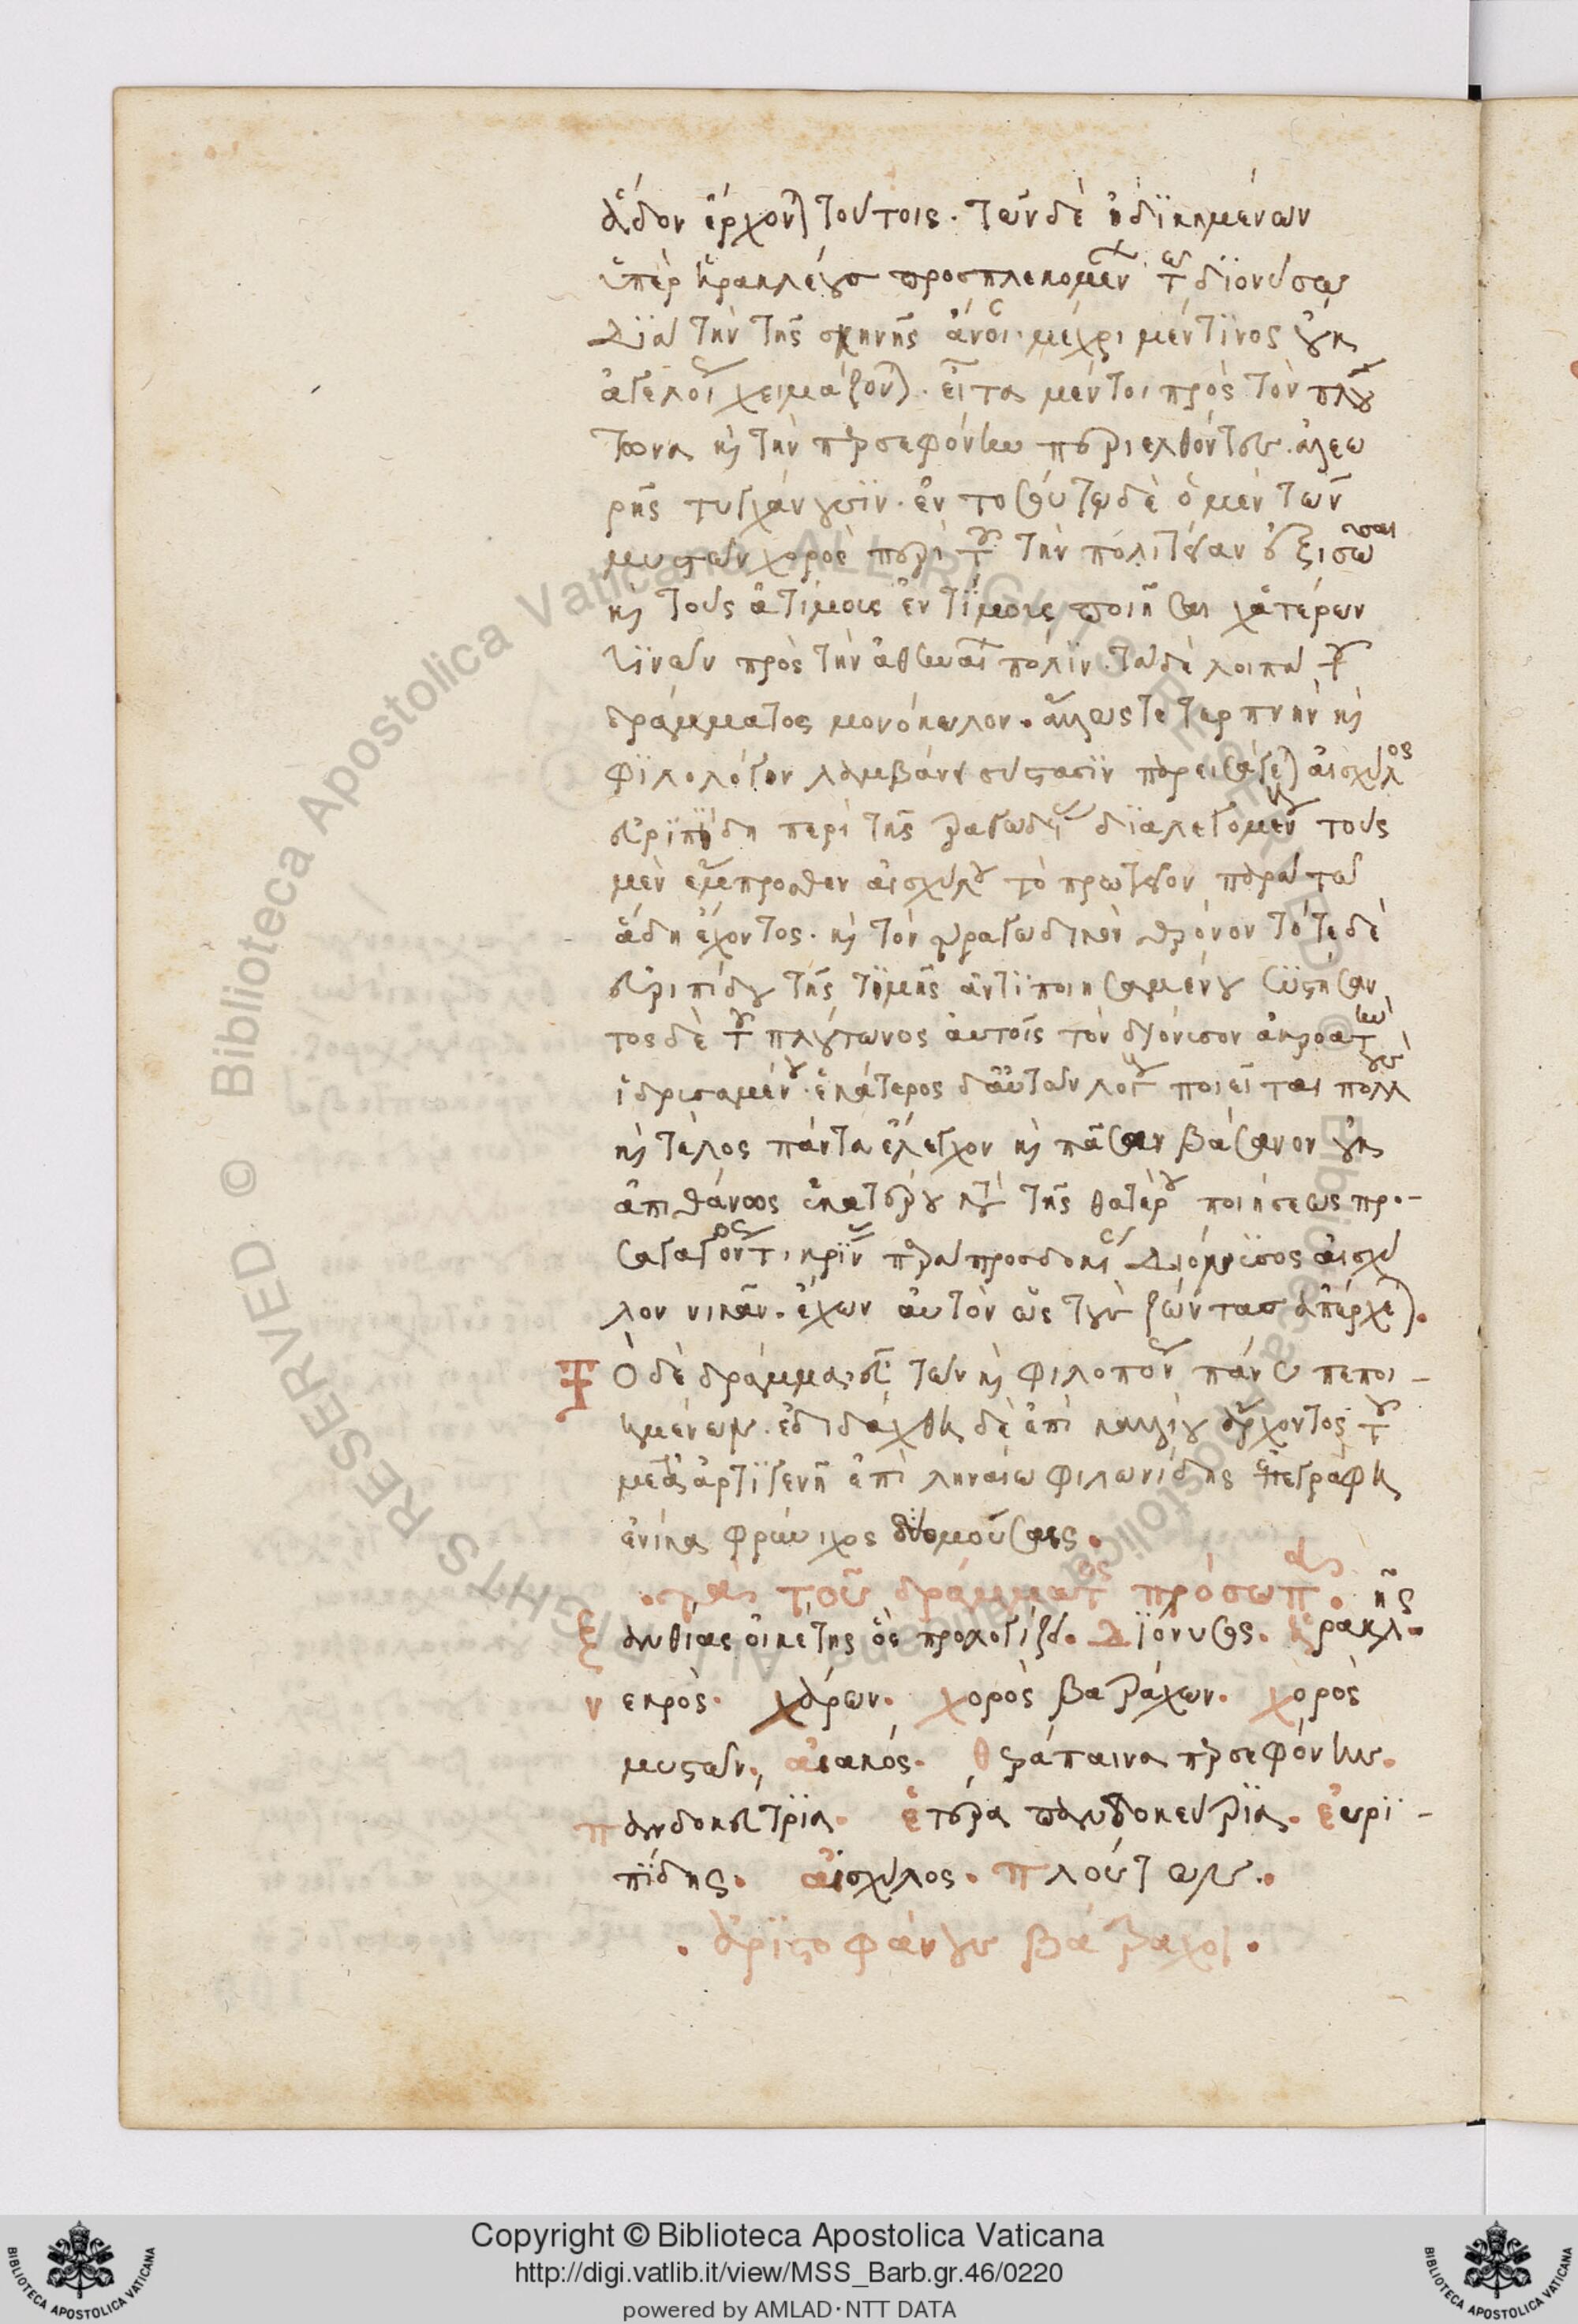 ᾅδον ἔρχονται τούτοις. τῶν δὲ ἠδϊκημένων
ὑπὲρ ἡρακλέους προσπλεκομένων τῷ δϊονύσῳ
Δϊὰ τὴν τῆς σκηνῆς ἄνοιαν μέχρι μέν τϊνος οὐκ
ἀγελοίως χειμάζονται. εἶτα μέντοι πρὸς τὸν πλού
τωνα καὶ τὴν περσεφόνην παριελθόντες. ἀλεω
ρῆς τυγχάνουσϊν. ἐν τοσούτῳ δὲ ὁ μὲν τῶν
μυστῶν χορὸς περὶ τοῦ τὴν πολιτείαν ἐξισῶσαι
καὶ τοὺς ἀτίμους ἐντίμους ποιῆσαι χἀτέρων
τϊνῶν πρὸς τὴν ἀθηναίων πόλϊν. τὰ δὲ λοιπὰ τοῦ
δράμματος μονόκωλον. ἄλλως τε τερπνὴν καὶ
φϊλολόγον λαμβάνει σύστασϊν παρεισάγεται αἰσχύλος
εὐρϊπίδη περὶ τῆς τραγωδίας δϊαλεγόμενος τοὺς
μὲν ἔμπροσθεν αἰσχύλου τὸ πρωτεῖον παρὰ τῶ
ἅδη ἔχοντος. καὶ τὸν τραγωδικὸν θρόνον τότε δὲ
εὐριπίδου τῆς τϊμῆς ἀντϊποιησαμένου συστήσαν
τος δὲ τοῦ πλούτωνος αὐτοῖς τὸν διόνυσον ἀκροατὴν
ἱδρυσαμένου. ἑκάτερος δ' αὐτῶν λόγους ποιεῖται πολλοὺς
καὶ τέλος πάντα ἔλεγχον καὶ πᾶσαν βάσανον οὐκ
ἀπιθάνως ἑκατέρου κατὰ τῆς θατέρου ποιήσεως προ-
σαγαγόντος, κρίνας παρὰ προσδοκίαν Διόνυσος αἰσχύ
λον νικᾶν. ἔχων αὐτὸν ὡς τοὺς ζῶντας ἀπέρχεται.
Τὸ δὲ δράμμα, εὖ τῶν καὶ φιλοπόνως πάνυ πεποι-
ημένων. ἐδιδάχθη δὲ ἐπὶ καλλίου ἄρχοντος τοῦ
μετὰ ἀρτϊγενῆ ἐπὶ ληναίω φιλωνίδης ἐπεγράφη
ἐνίκα φρύνιχος δ' ὁ μούσαις.
τὰ τοῦ δράμματος πρόσωπα.
ξανθίας οἰκέτης ὃς προλογίζει. Δϊόνυσος. ἡρακλῆς.
νεκρὸς. χάρων. χορὸς βατράχων. χορὸς
μυστῶν. αἰακός. θεράπαινα περσεφόνης.
πανδοκεύτρϊα. ἑτέρα πανδοκεύτρϊα. εὐρϊ-
πϊδης. αἰσχύλος. πλούτων.
ἀρϊστοφάνους βάτραχοι.
Copyright © Biblioteca Apostolica Vaticana
http://digi.vatlib.it/view/MSS_Barb.gr.46/0220
powered by AMLAD·NTT DATA